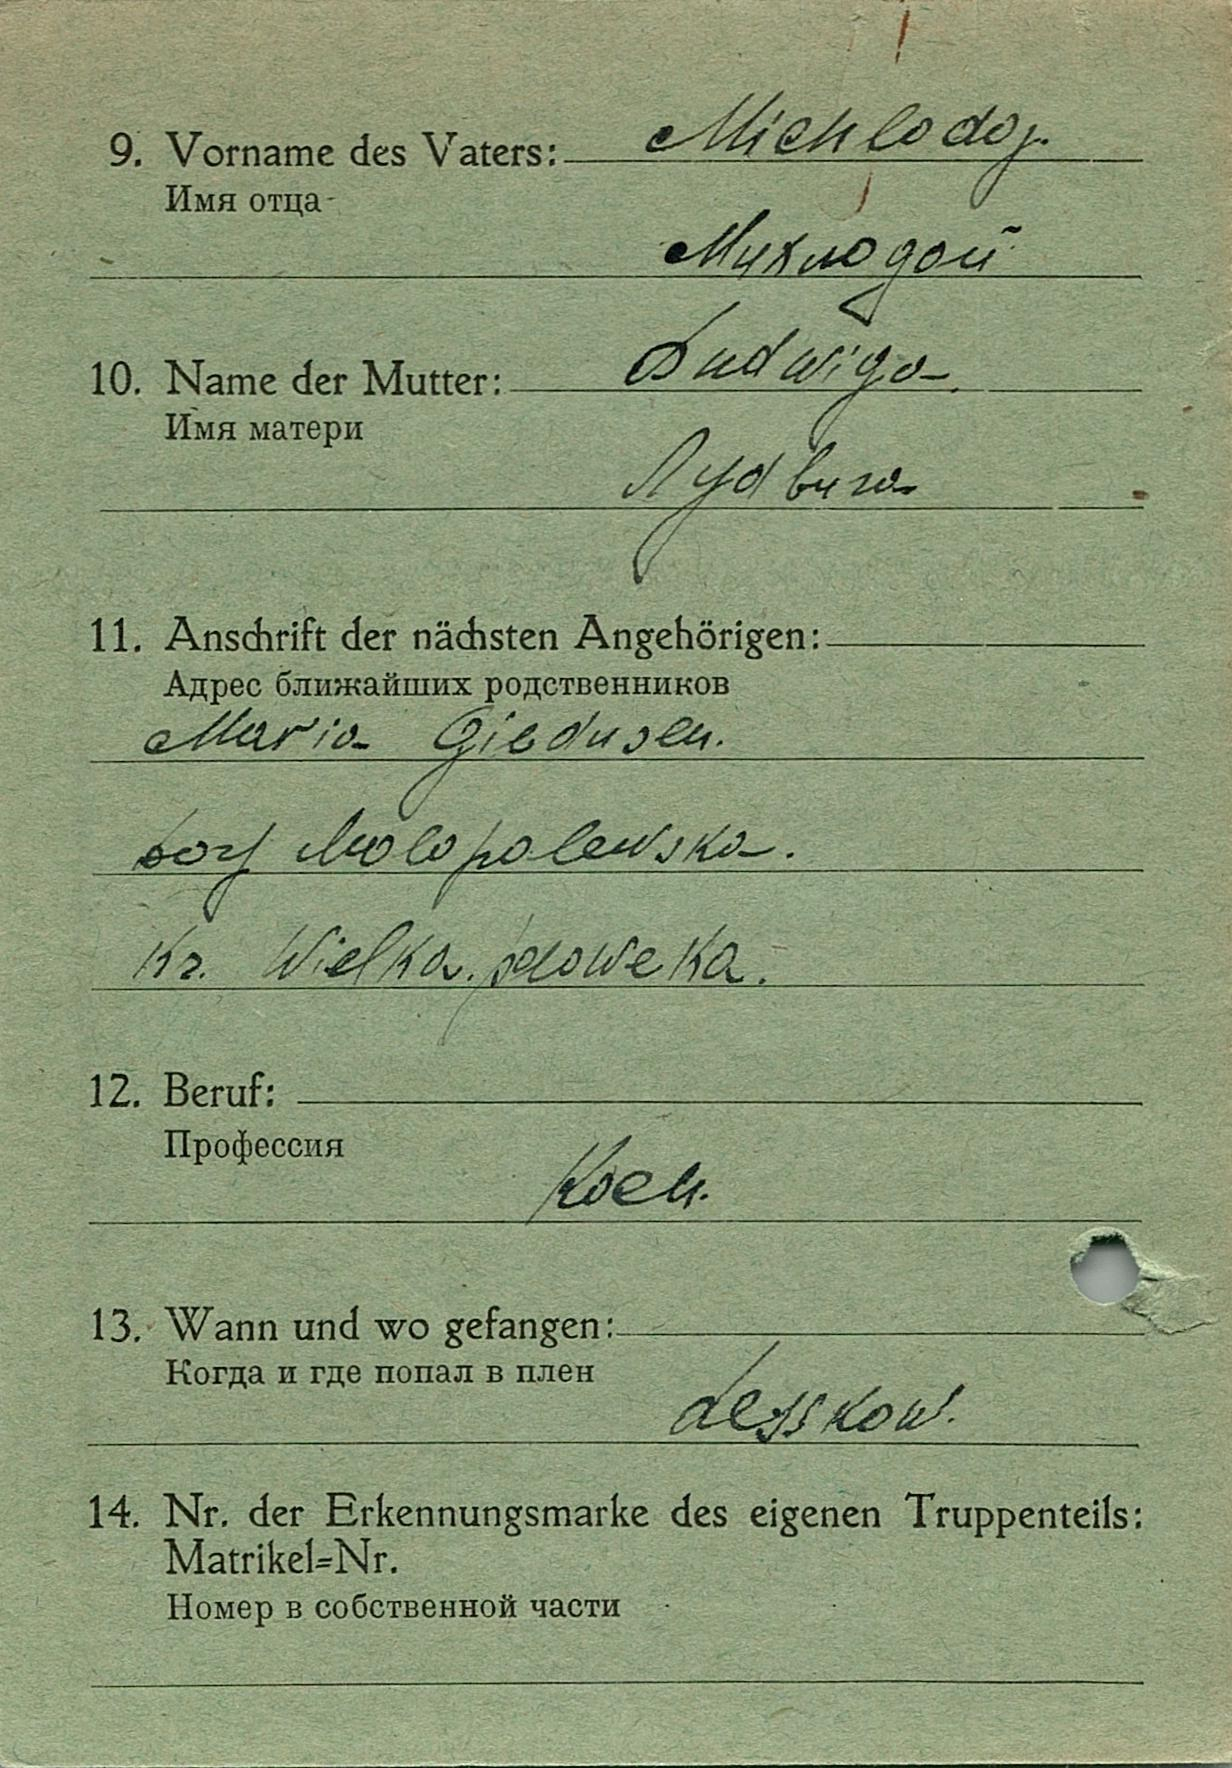 9. Vorname des Vaters: Michlodoj.
Имя отца
Михлодой
10. Name der Mutter: Ludwiga.
Имя матери
Лудвига
11. Anschrift der nächsten Angehörigen:
Адрес ближайших родственников
Maria
Dorf
Kr. Wielka.
12. Beruf:
Профессия
Koch.
13. Wann und wo gefangen:
Когда и где попал в плен
Lesskow.
14. Nr. der Erkennungsmarke des eigenen Truppenteils:
Matrikel=Nr.
Номер в собственной части